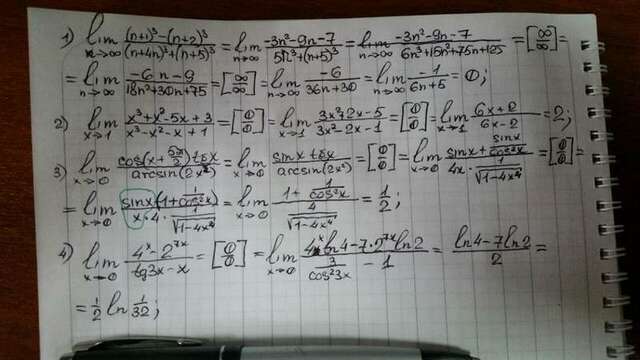 1) lim n→∞ ((n+1)³-(n+2)³)/((n+4n)³+(n+5)³) = lim n→∞ (-3n²-9n-7)/(5n³+(n+5)³) = lim n→∞ (-3n²-9n-7)/(6n³+15n²+75n+125) = [∞/∞] =
= lim n→∞ (-6n-9)/(18n²+30n+75) = [∞/∞] = lim n→∞ (-6)/(36n+30) = lim n→∞ (-1)/(6n+5) = 0;
2) lim x→1 (x³+x²-5x+3)/(x³-x²-x+1) = [0/0] = lim x→1 (3x²+2x-5)/(3x²-2x-1) = [0/0] = lim x→1 (6x+2)/(6x-2) = 2;
3) lim x→0 (cos(x+5π/2)tgx)/(arcsin(2x²)) = lim x→0 (sinx tgx)/(arcsin(2x²)) = [0/0] = lim x→0 (sinx+sinx/cos²x)/(4x·1/√(1-4x⁴)) = [0/0] =
= lim x→0 (sinx(1+1/cos²x))/(x·4·1/√(1-4x⁴)) = lim x→0 (1+1/cos²x)/(4/√(1-4x⁴)) = 1/2;
4) lim x→0 (4ˣ-2⁷ˣ)/(tg3x-x) = [0/0] = lim x→0 (4ˣln4-7·2⁷ˣln2)/(3/cos²3x-1) = (ln4-7ln2)/2 =
= 1/2 ln 1/32;